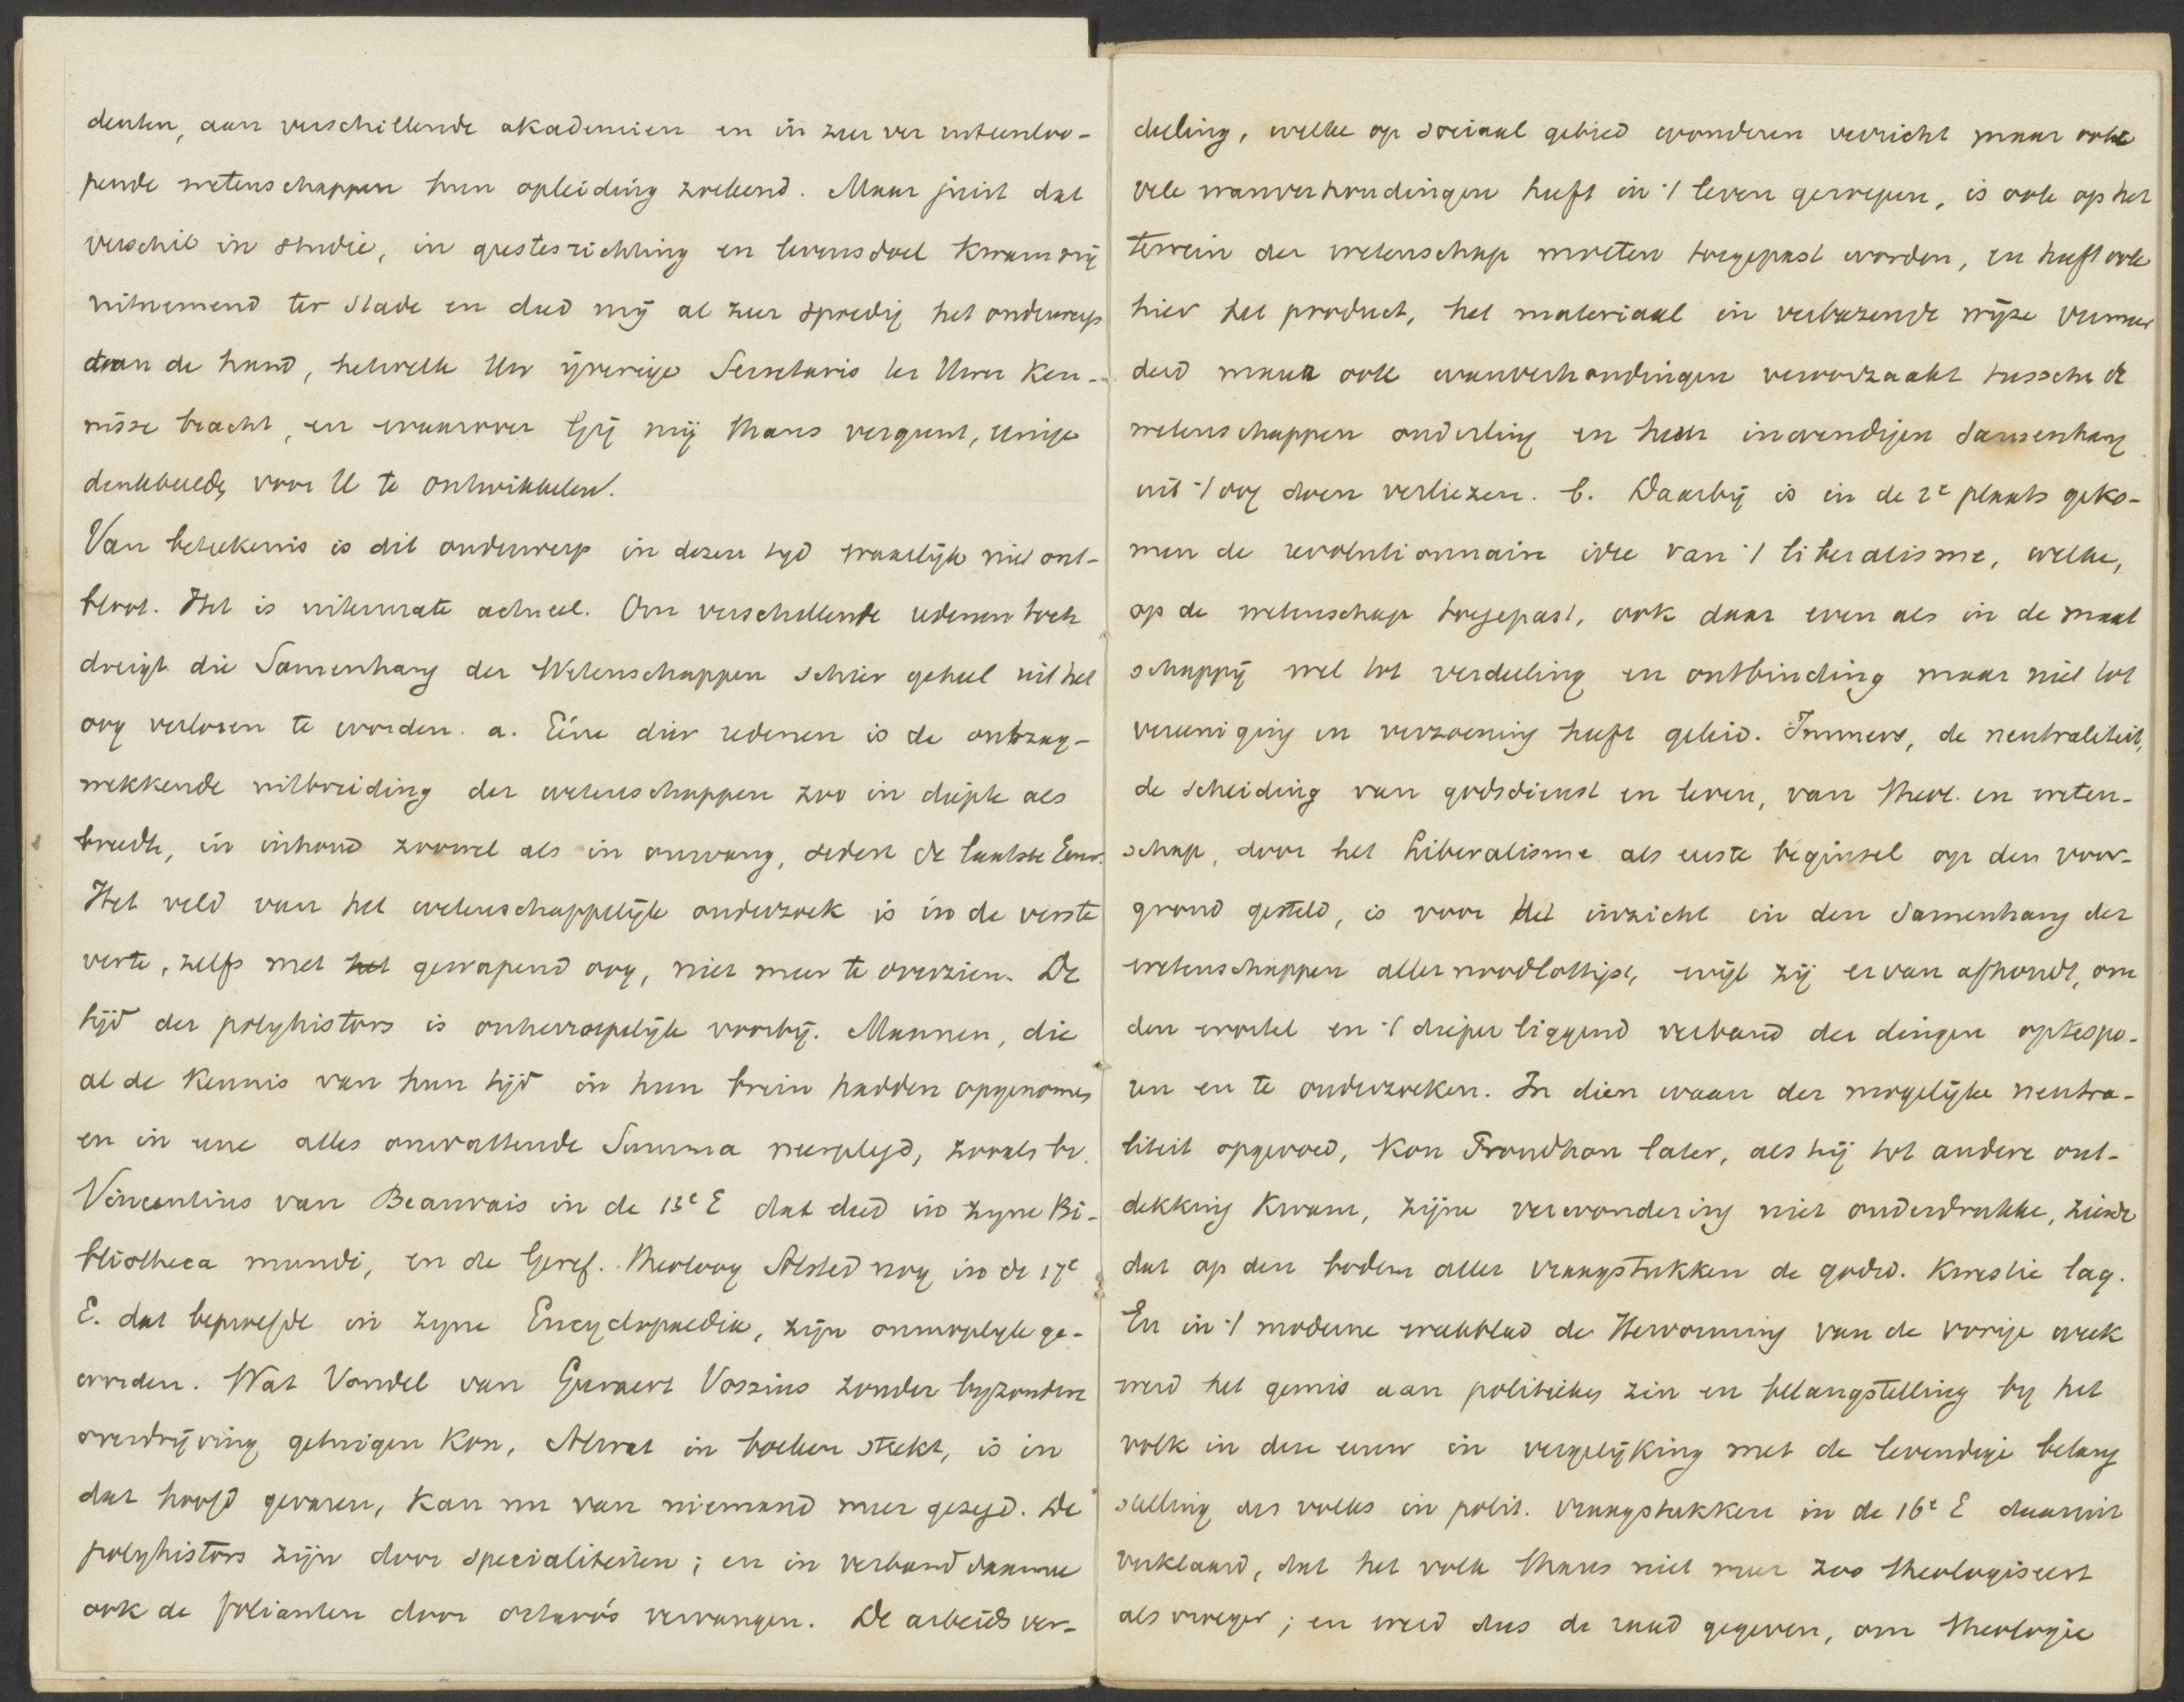 denten, aan verschillende akademien en in zeer ver uiteenloo-
pende wetenschappen hun opleiding zoekend. Maar juist dat
verschil in studie, in geestesrichting en levensdoel kwam mij
uitnemend ter stade en deed mij al zeer spoedig het onderwerp
aan de hand, hetwelk Uw ijverige Secretaris ter Uwer ken-
nisse bracht, en waarover Gij mij thans vergunt, eenige
denkbeelden voor U te ontwikkelen.
Van beteekenis is dit onderwerp in dezen tyd waarlijk niet ont-
bloot. Het is uitermate actueel. Om verschillende redenen toch
dreigt die Samenhang der Wetenschappen schier geheel uit het
oog verloren te worden. a. Eéne dier redenen is de ontzag-
wekkende uitbreiding der wetenschappen zoo in diepte als
breedte, in inhoud zoowel als in omvang, sedert de laatste Eeuw.
Het veld van het wetenschappelijk onderzoek is in de verste
verte, zelfs met het gewapend oog, niet meer te overzien. De
tijd der polyhistors is onherroepelijk voorbij. Mannen, die
al de kennis van hun tijd in hun brein hadden opgenomen
en in eene alles omvattende Summa neerlegd, zooals bv.
Vincentius van Beauvais in de 13e E dat deed in zyne Bi-
bliotheca mundi, en de Geref. theoloog Alsted nog in de 17e
E. dat beproefde in zyne Encyclopaedie, zijn onmogelyk ge-
worden. Wat Vondel van Geeraert Vossius zonder byzondere
overdrijving getuigen kon, Al wat in boeken steekt, is in
dat hoofd gevaren, kan nu van niemand meer gezegd. De
polyhistors zijn door specialiteiten; en in verband daarmee
ook de folianten door octavo's vervangen. De arbeidsver-
deeling, welke op sociaal gebied wonderen verricht maar ook
vele wanverhoudingen heeft in 't leven geroepen, is ook op het
terrein der wetenschap moeten toegepast worden, en heeft ook
hier het product, het materiaal in verbazende wijze vermeer
derd maar ook wanverhoudingen veroorzaakt tusschen de
wetenschappen onderling en hun inwendigen samenhang
uit 't oog doen verliezen. b. Daarbij is in de 2e plaats geko-
men de revolutionnaire idee van 't liberalisme, welke,
op de wetenschap toegepast, ook daar even als in de maat
schappij wel tot verdeeling en ontbinding maar niet tot
vereeniging en verzoening heeft geleid. Immers, de neutraliteit,
de scheiding van godsdienst en leven, van theol. en weten-
schap, door het Liberalisme als eerste beginsel op den voor-
grond gesteld, is voor het inzicht in den samenhang der
wetenschappen allernoodlottigst, wijl zij ervan afhoudt, om
den wortel en 't dieper liggend verband der dingen optespo-
ren en te onderzoeken. In dien waan der mogelijke neutra-
liteit opgevoed, kon Proudhon later, als hij tot andere ont-
dekking kwam, zijne verwondering niet onderdrukken, ziende
dat op den bodem aller vraagstukken de godsd. kwestie lag.
En in 't moderne weekblad de Hervorming van de vorige week
werd het gemis aan politieken zin en belangstelling by het
volk in deze eeuw in vergelijking met de levendige belang
stelling des volks in polit. vraagstukken in de 16e E daaruit
verklaard, dat het volk thans niet meer zoo theologiseert
als vroeger; en werd dus de raad gegeven, om theologie